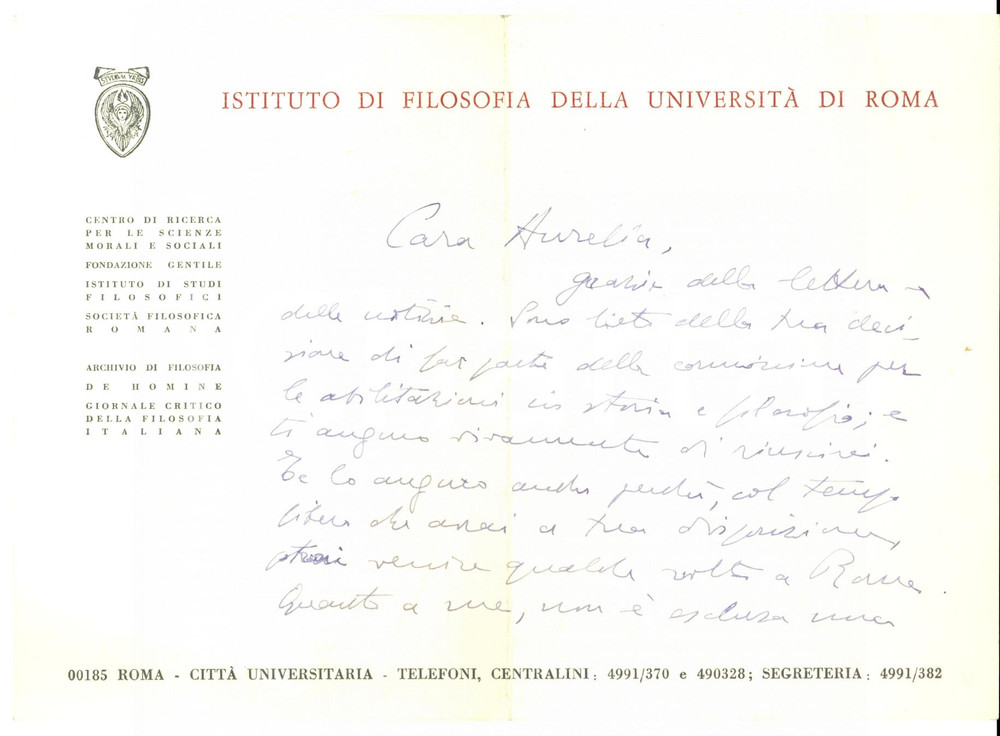 STVDIVM VRBIS
ISTITUTO DI FILOSOFIA DELLA UNIVERSITÀ DI ROMA
CENTRO DI RICERCA
PER LE SCIENZE
MORALI E SOCIALI
FONDAZIONE GENTILE
ISTITUTO DI STUDI
FILOSOFICI
SOCIETÀ FILOSOFICA
ROMANA
ARCHIVIO DI FILOSOFIA
DE HOMINE
GIORNALE CRITICO
DELLA FILOSOFIA
ITALIANA
Cara Aurelia,
grazie della lettera e
delle notizie. Sono lieto della tua deci-
sione di far parte della commissione per
le abilitazioni in storia e filosofia; e
ti auguro vivamente di riuscirci.
Te lo auguro anche perché, col tempo
libero che avrai a tua disposizione,
potrai venire qualche volta a Roma.
Quanto a me, non è esclusa una
00185 ROMA - CITTÀ UNIVERSITARIA - TELEFONI, CENTRALINI: 4991/370 e 490328; SEGRETERIA: 4991/382